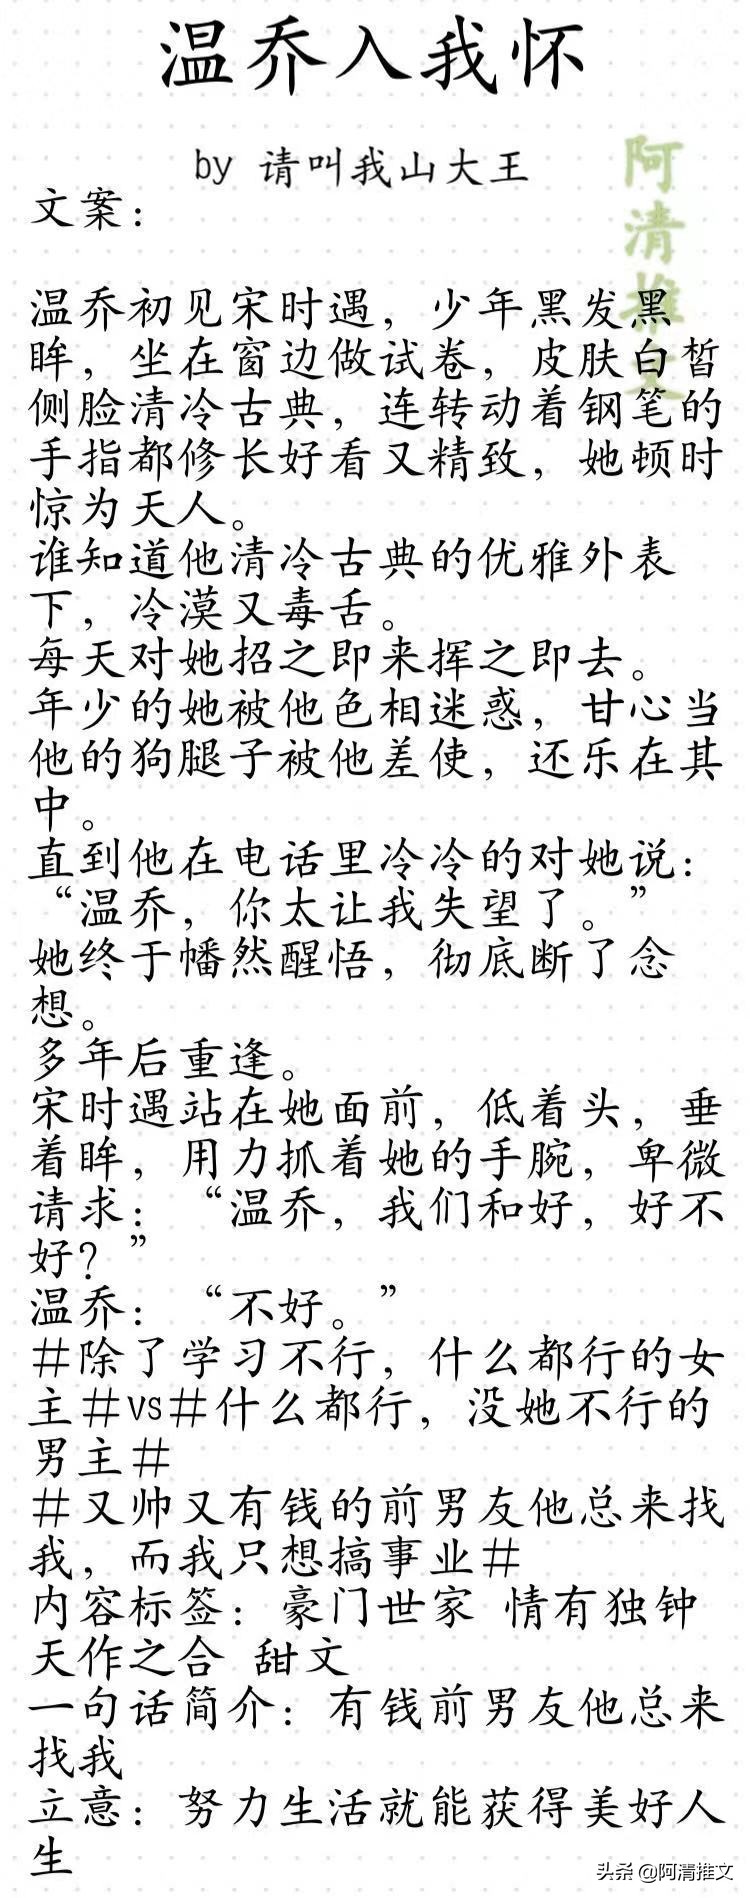 温乔入我怀
by 请叫我山大王
阿清推文
文案：
温乔初见宋时遇，少年黑发黑
眸，坐在窗边做试卷，皮肤白皙
侧脸清冷古典，连转动着钢笔的
手指都修长好看又精致，她顿时
惊为天人。
谁知道他清冷古典的优雅外表
下，冷漠又毒舌。
每天对她招之即来挥之即去。
年少的她被他色相迷惑，甘心当
他的狗腿子被他差使，还乐在其
中。
直到他在电话里冷冷的对她说：
“温乔，你太让我失望了。”
她终于幡然醒悟，彻底断了念
想。
多年后重逢。
宋时遇站在她面前，低着头，垂
着眸，用力抓着她的手腕，卑微
请求：“温乔，我们和好，好不
好？”
温乔：“不好。”
#除了学习不行，什么都行的女
主#vs#什么都行，没她不行的
男主#
#又帅又有钱的前男友他总来找
我，而我只想搞事业#
内容标签：豪门世家 情有独钟
天作之合 甜文
一句话简介：有钱前男友他总来
找我
立意：努力生活就能获得美好人
生
头条 @阿清推文